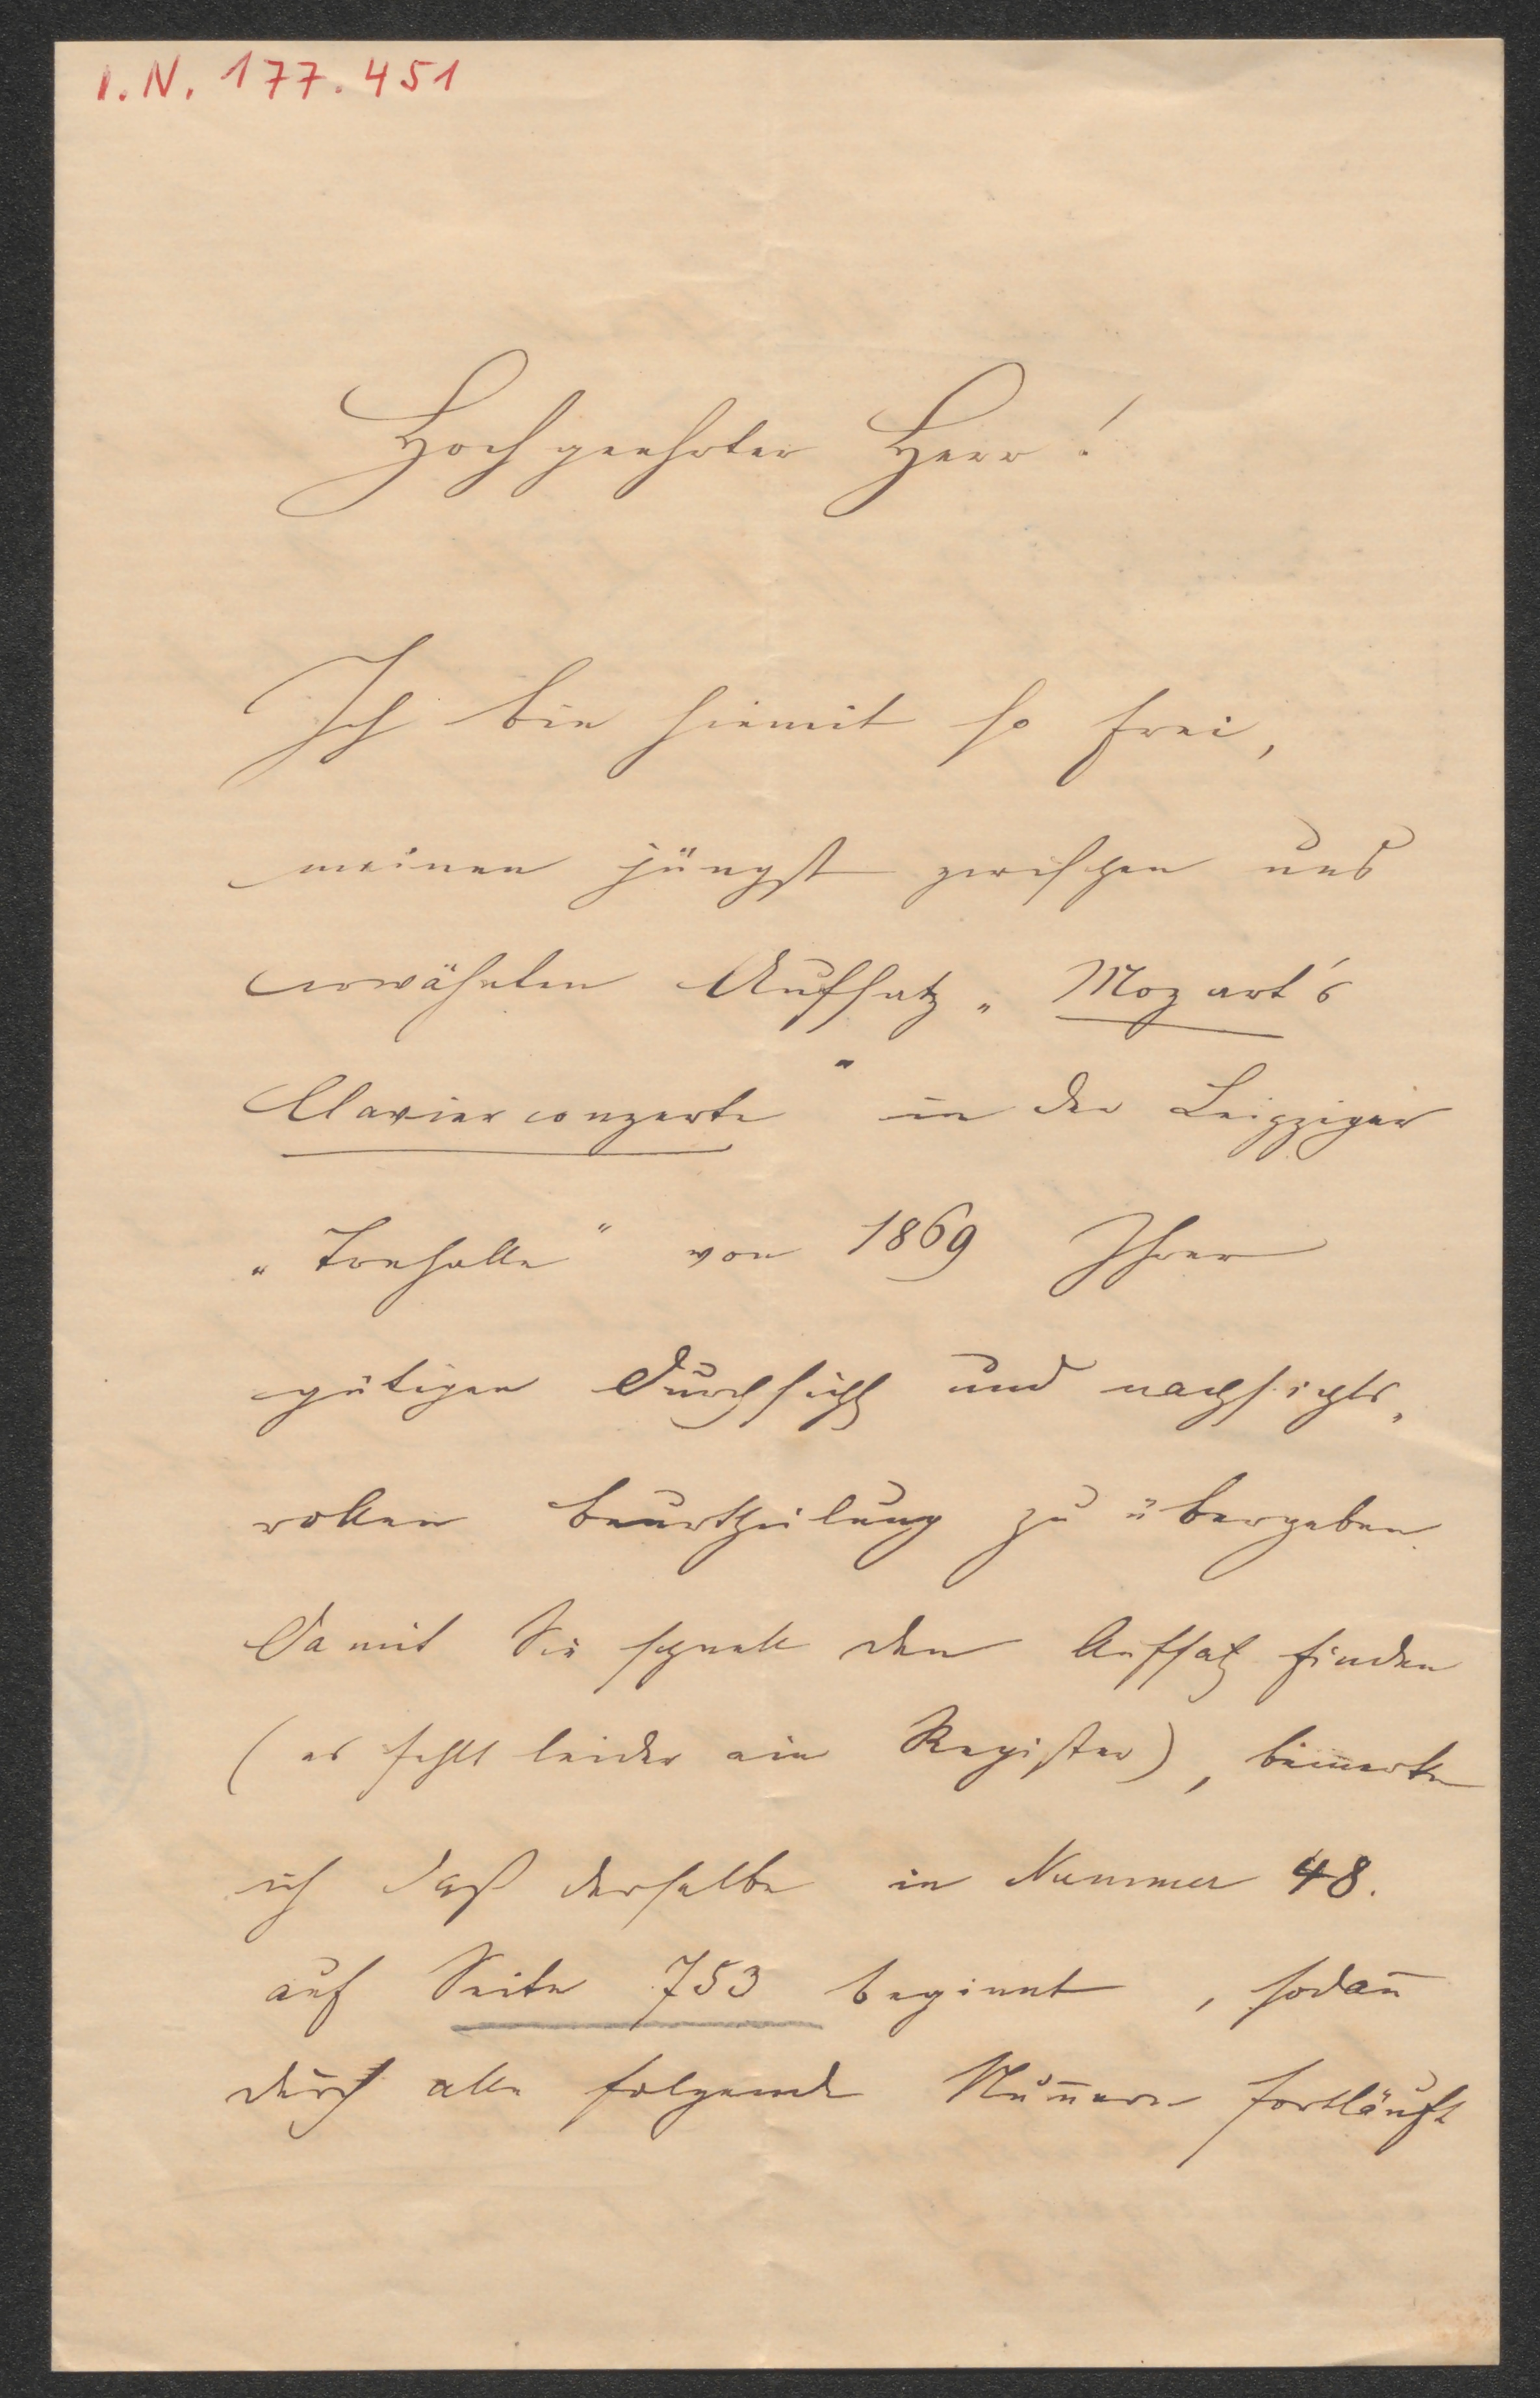 I.N. 177.451
Hochgeehrter Herr!
Ich bin hiemit so frei,
meinen jüngst zwischen uns
erwähnten Aufsatz „Mozart's
Clavierconzerte" in der Leipziger
„Tonhalle" von 1869 Ihrer
gütigen Durchsicht und nachsichts„
vollen Beurtheilung zu übergeben.
Damit Sie schnell den Aufsatz finden
(es fehlt leider ein Register), bemerke
ich daß derselbe in Nummer 48.
auf Seite 753 beginnt, sodan̄
durch alle folgende Num̄ern fortläuft